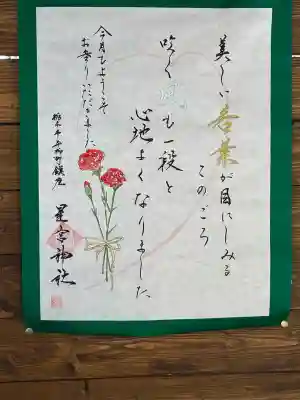 美しい若葉が目にしみる
このごろ
吹く風も一段と
心地よくなりました
今月もようこそ
お参りいただきました
栃木市平柳町鎮座
星宮神社